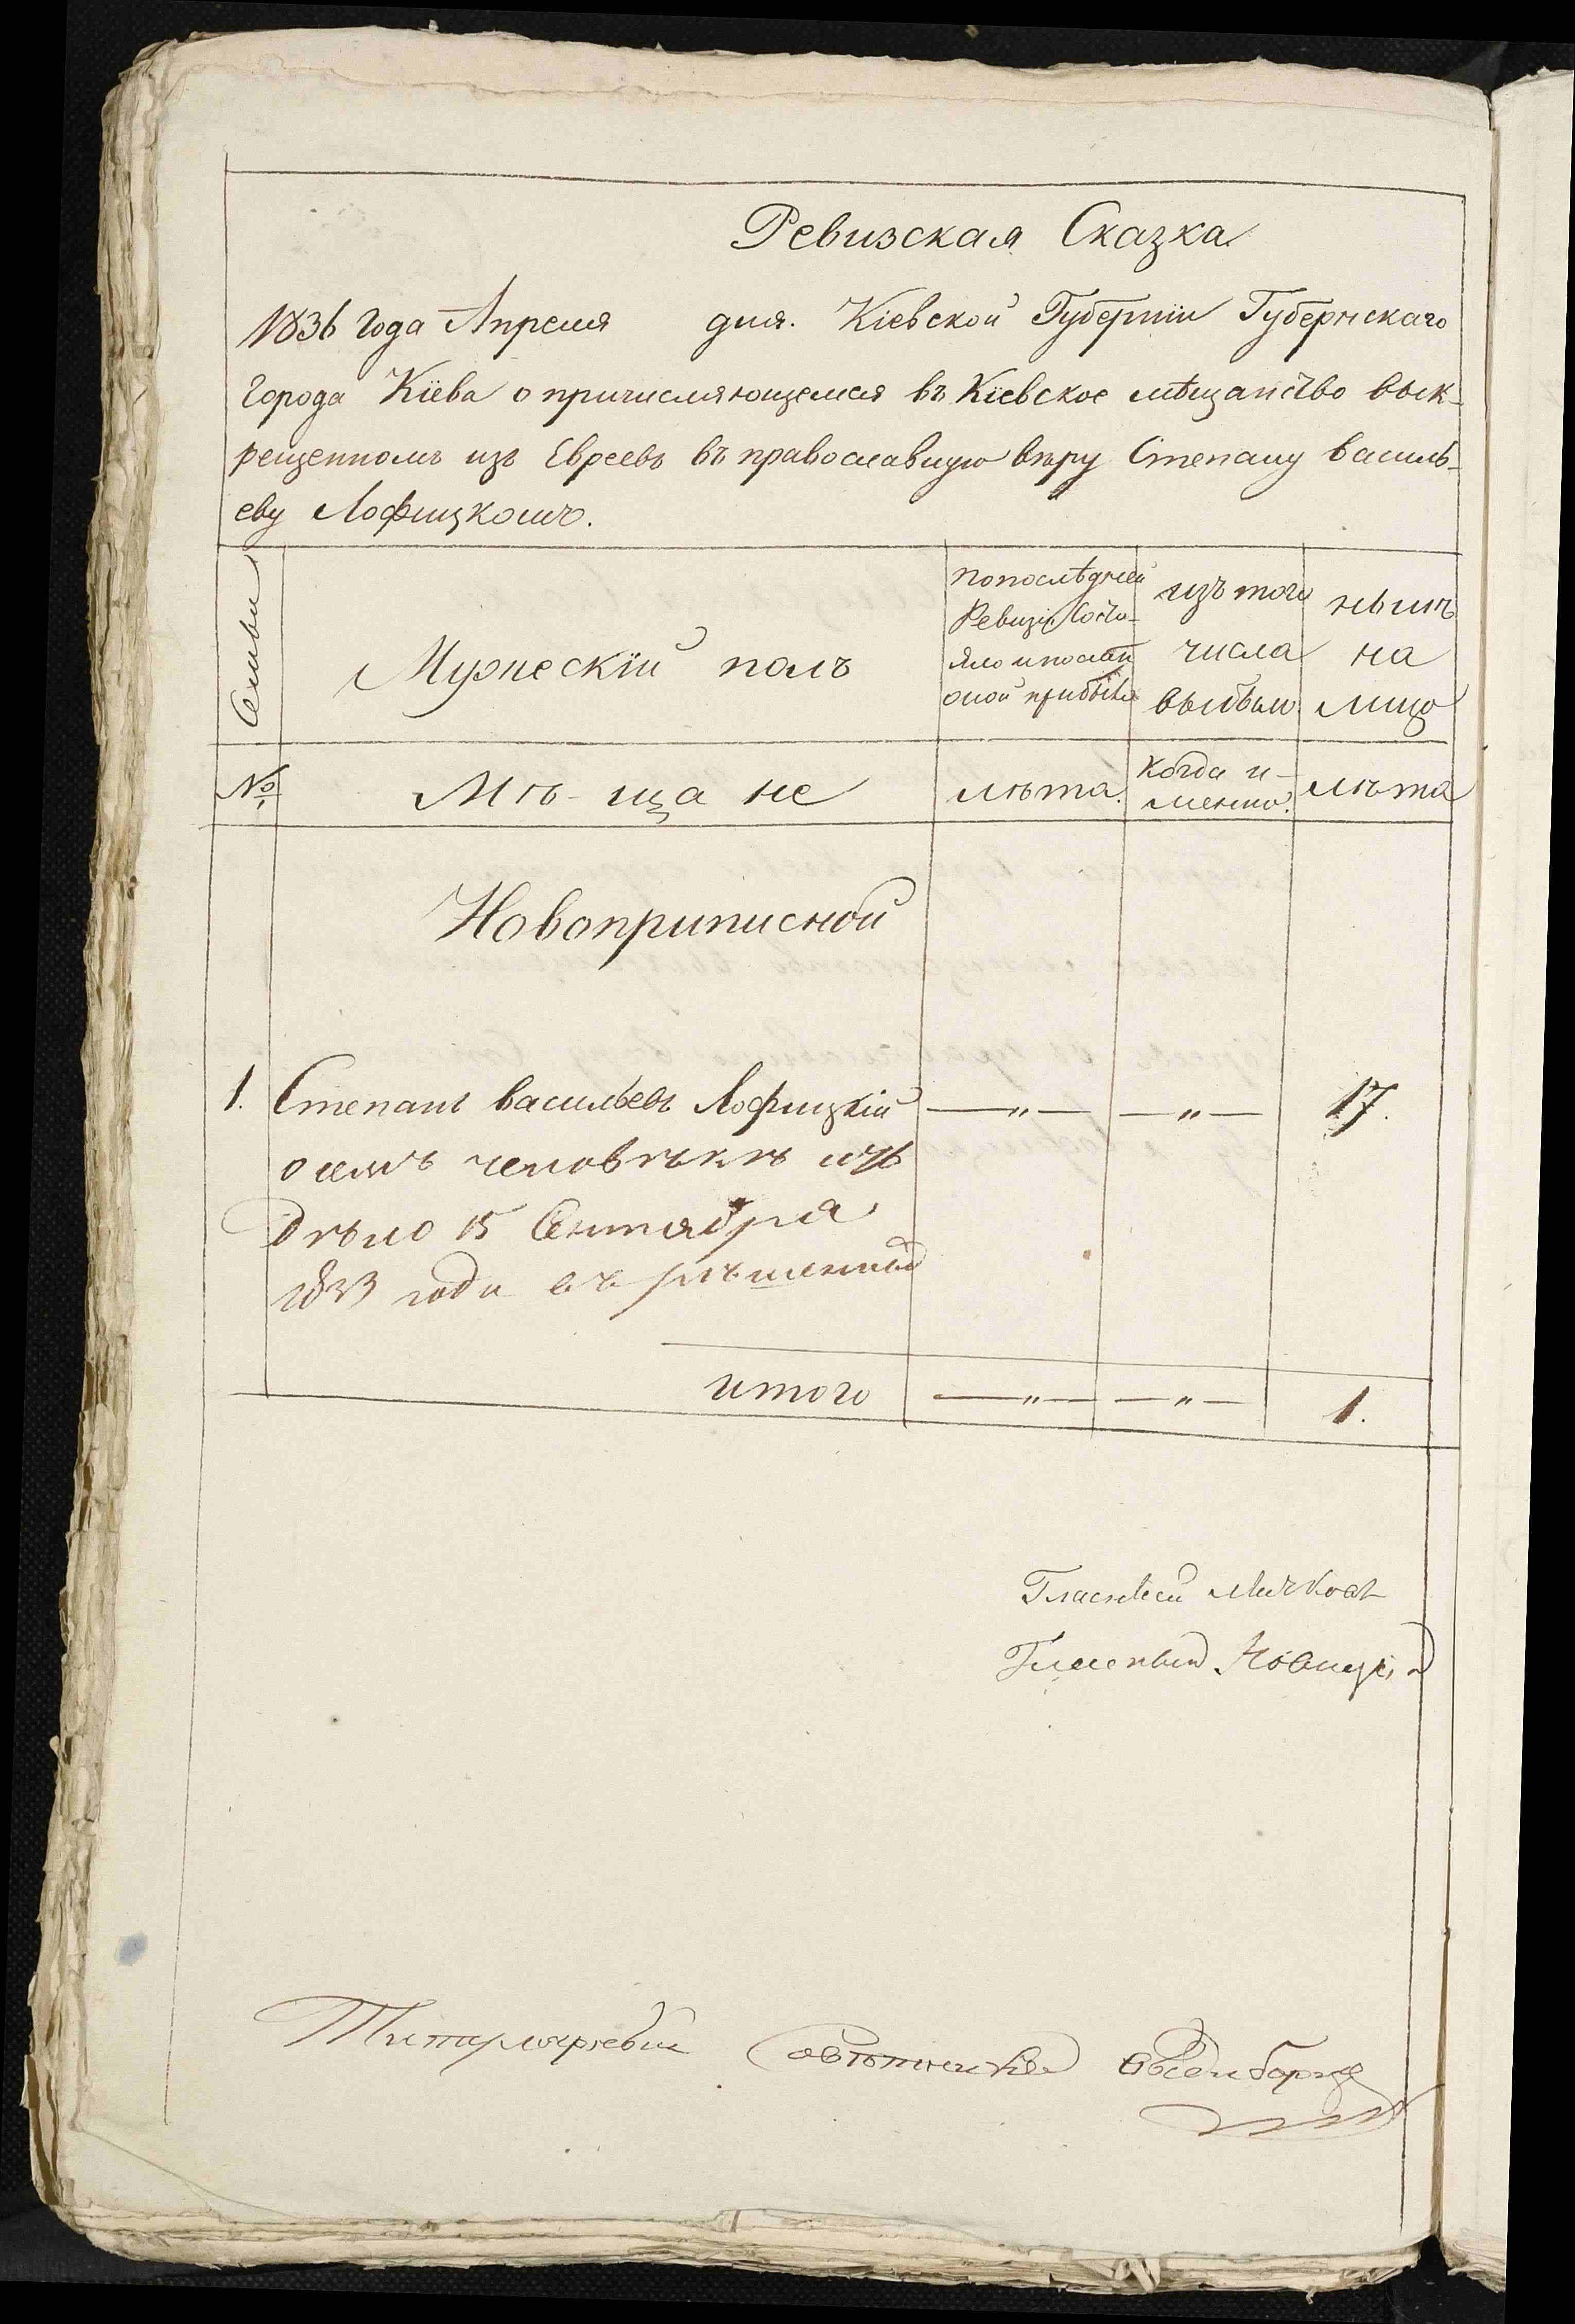 Ревизская Сказка
1836 года Апреля дня. Кіевской Губерніи Губернскаго
города Кіева о причисляющемся въ Кіевское мѣщанство вык-
рещенномъ изъ Евреевъ въ православную вѣру Степану василь-
еву Лофицкомъ.
Семьи
Мужескій полъ
по послѣдней
Ревизіи состо-
яло и послѣ
оной прибыло
изъ того
числа
выбыло
нынѣ
на
лицо
№
Мѣ-ща не
лѣта.
когда и-
менно.
лѣта
Новоприписной
1. Степанъ васильевъ Лофицкій —„— —„— 17.
о семъ человѣкѣ
Дѣло 15 Сентября
года
итого —„— —„— 1.
Гласный
Гласный Новицкій
Совѣтникъ